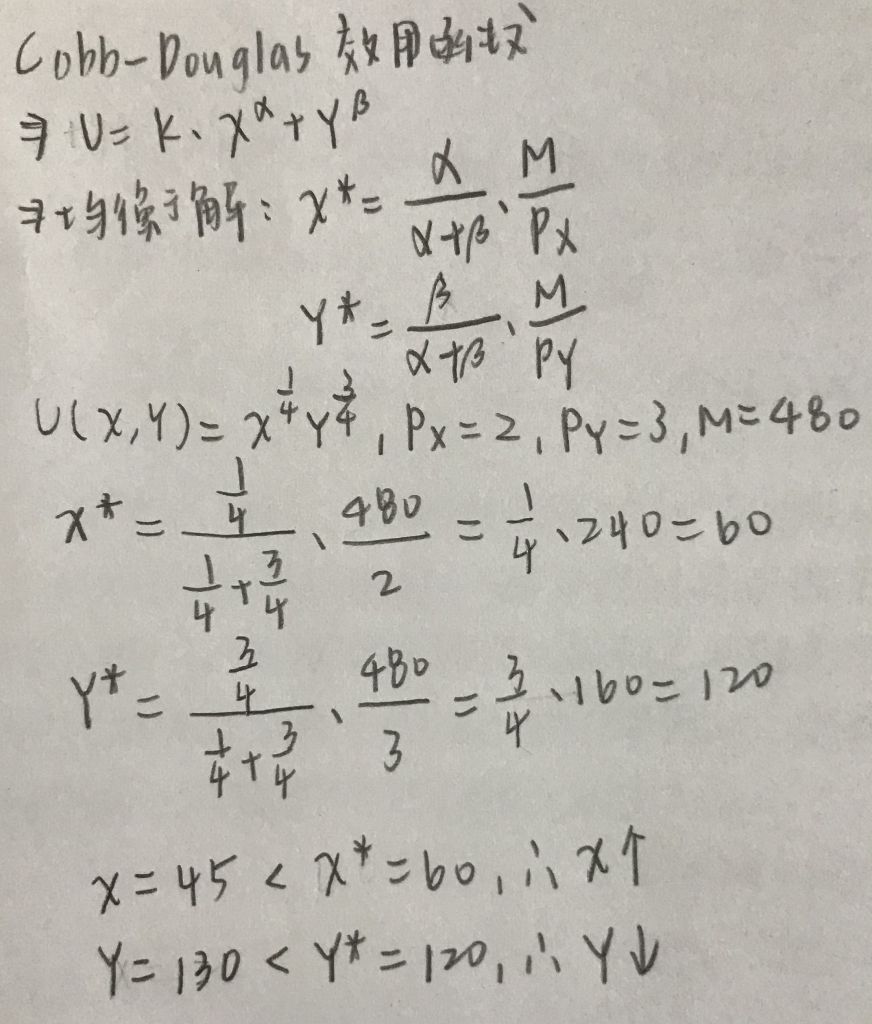 Cobb-Douglas 效用函數
⇒ U = K、X^α + Y^β
⇒ 均衡解: X* = α/(α+β)、M/PX
Y* = β/(α+β)、M/PY
U(X,Y) = X^(1/4) Y^(3/4), PX = 2, PY = 3, M = 480
X* = (1/4)/(1/4 + 3/4)、480/2 = 1/4、240 = 60
Y* = (3/4)/(1/4 + 3/4)、480/3 = 3/4、160 = 120
X = 45 < X* = 60, ∴ X↑
Y = 130 < Y* = 120, ∴ Y↓